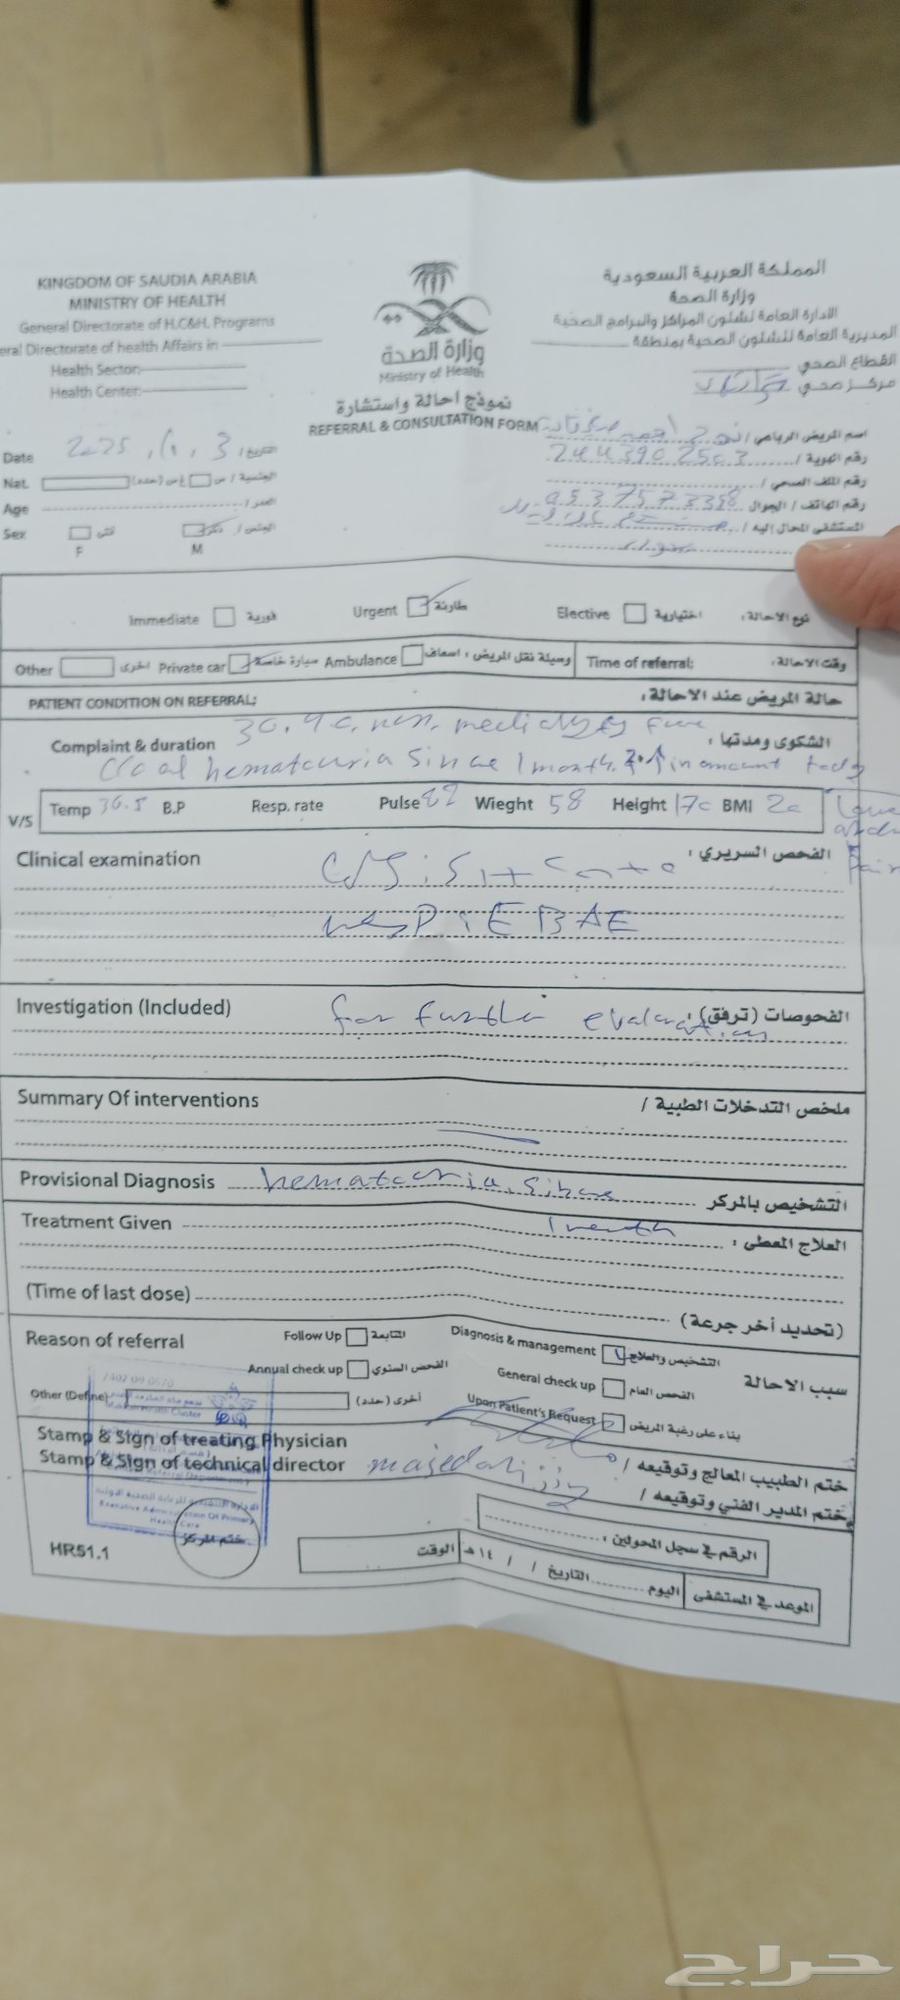 KINGDOM OF SAUDIA ARABIA
MINISTRY OF HEALTH
General Directorate of H.C&H. Programs
eral Directorate of health Affairs in
Health Sector:
Health Center:
وزارة الصحة
Ministry of Health
نموذج احالة واستشارة
REFERRAL & CONSULTATION FORM
المملكة العربية السعودية
وزارة الصحة
الادارة العامة لشئون المراكز والبرامج الصحية
المديرية العامة للشئون الصحية بمنطقة
القطاع الصحي
مركز صحي
Date 2025 , 1 , 3 التاريخ /
اسم المريض الرباعي /
Nat. الجنسية / س غ س (حدد)
رقم الهوية / 2443902503
Age العمر /
رقم الملف الصحي /
Sex F انثى M ذكر الجنس /
رقم الهاتف / الجوال
المستشفى المحال اليه /
Immediate فورية Urgent طارئة Elective اختيارية نوع الاحالة:
Other اخرى Private car سيارة خاصة Ambulance اسعاف وسيلة نقل المريض: Time of referral: وقت الاحالة:
PATIENT CONDITION ON REFERRAL: حالة المريض عند الاحالة:
Complaint & duration الشكوى ومدتها:
c/o of hematouria since 1 month in amount today
V/S Temp 36.5 B.P Resp. rate Pulse 82 Wieght 58 Height 170 BMI 20
Pain
Clinical examination الفحص السريري:
CVS: S1+S2+0
resp: EBAE
Investigation (Included) for further evaluation الفحوصات (ترفق):
Summary Of interventions ملخص التدخلات الطبية /
Provisional Diagnosis hematouria since التشخيص بالمركز
1 month
Treatment Given العلاج المعطى:
(Time of last dose) (تحديد أخر جرعة)
Reason of referral Follow Up المتابعة Diagnosis & management التشخيص والعلاج سبب الاحالة
Annual check up الفحص السنوي General check up الفحص العام
Other (Define) أخرى (حدد) Upon Patient's Request بناء على رغبة المريض
Stamp & Sign of treating Physician ختم الطبيب المعالج وتوقيعه /
Stamp & Sign of technical director majed ختم المدير الفني وتوقيعه /
Executive Administration Of Primary
Health Care
ختم المركز
HR51.1
الرقم في سجل المحولين:
الموعد في المستشفى اليوم التاريخ / / ١٤هـ الوقت
حراج